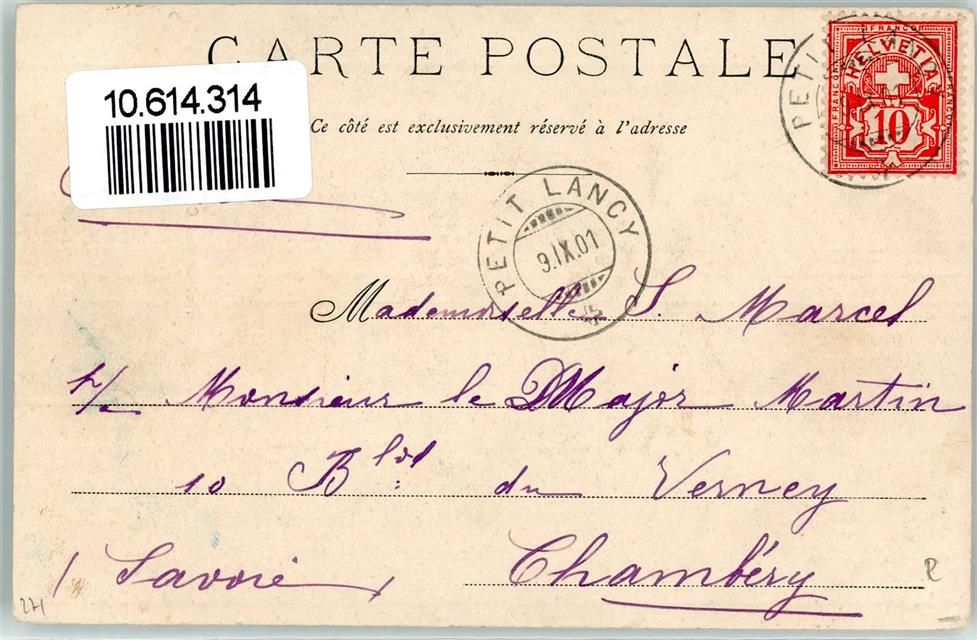 CARTE POSTALE
10.614.314
Ce côté est exclusivement réservé à l'adresse
PETIT
HELVETIA
FRANCO
10
PETIT LANCY
9.IX.01
Mademoiselle S. Marcel
Monsieur le Major Martin
10 Bld: du Verney
(Savoie) Chambéry
271
R